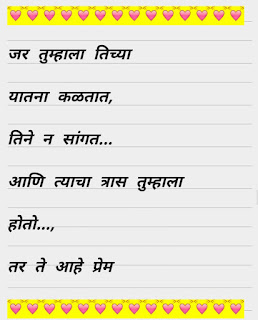 जर तुम्हाला तिच्या
यातना कळतात,
तिने न सांगत...
आणि त्याचा त्रास तुम्हाला
होतो...,
तर ते आहे प्रेम